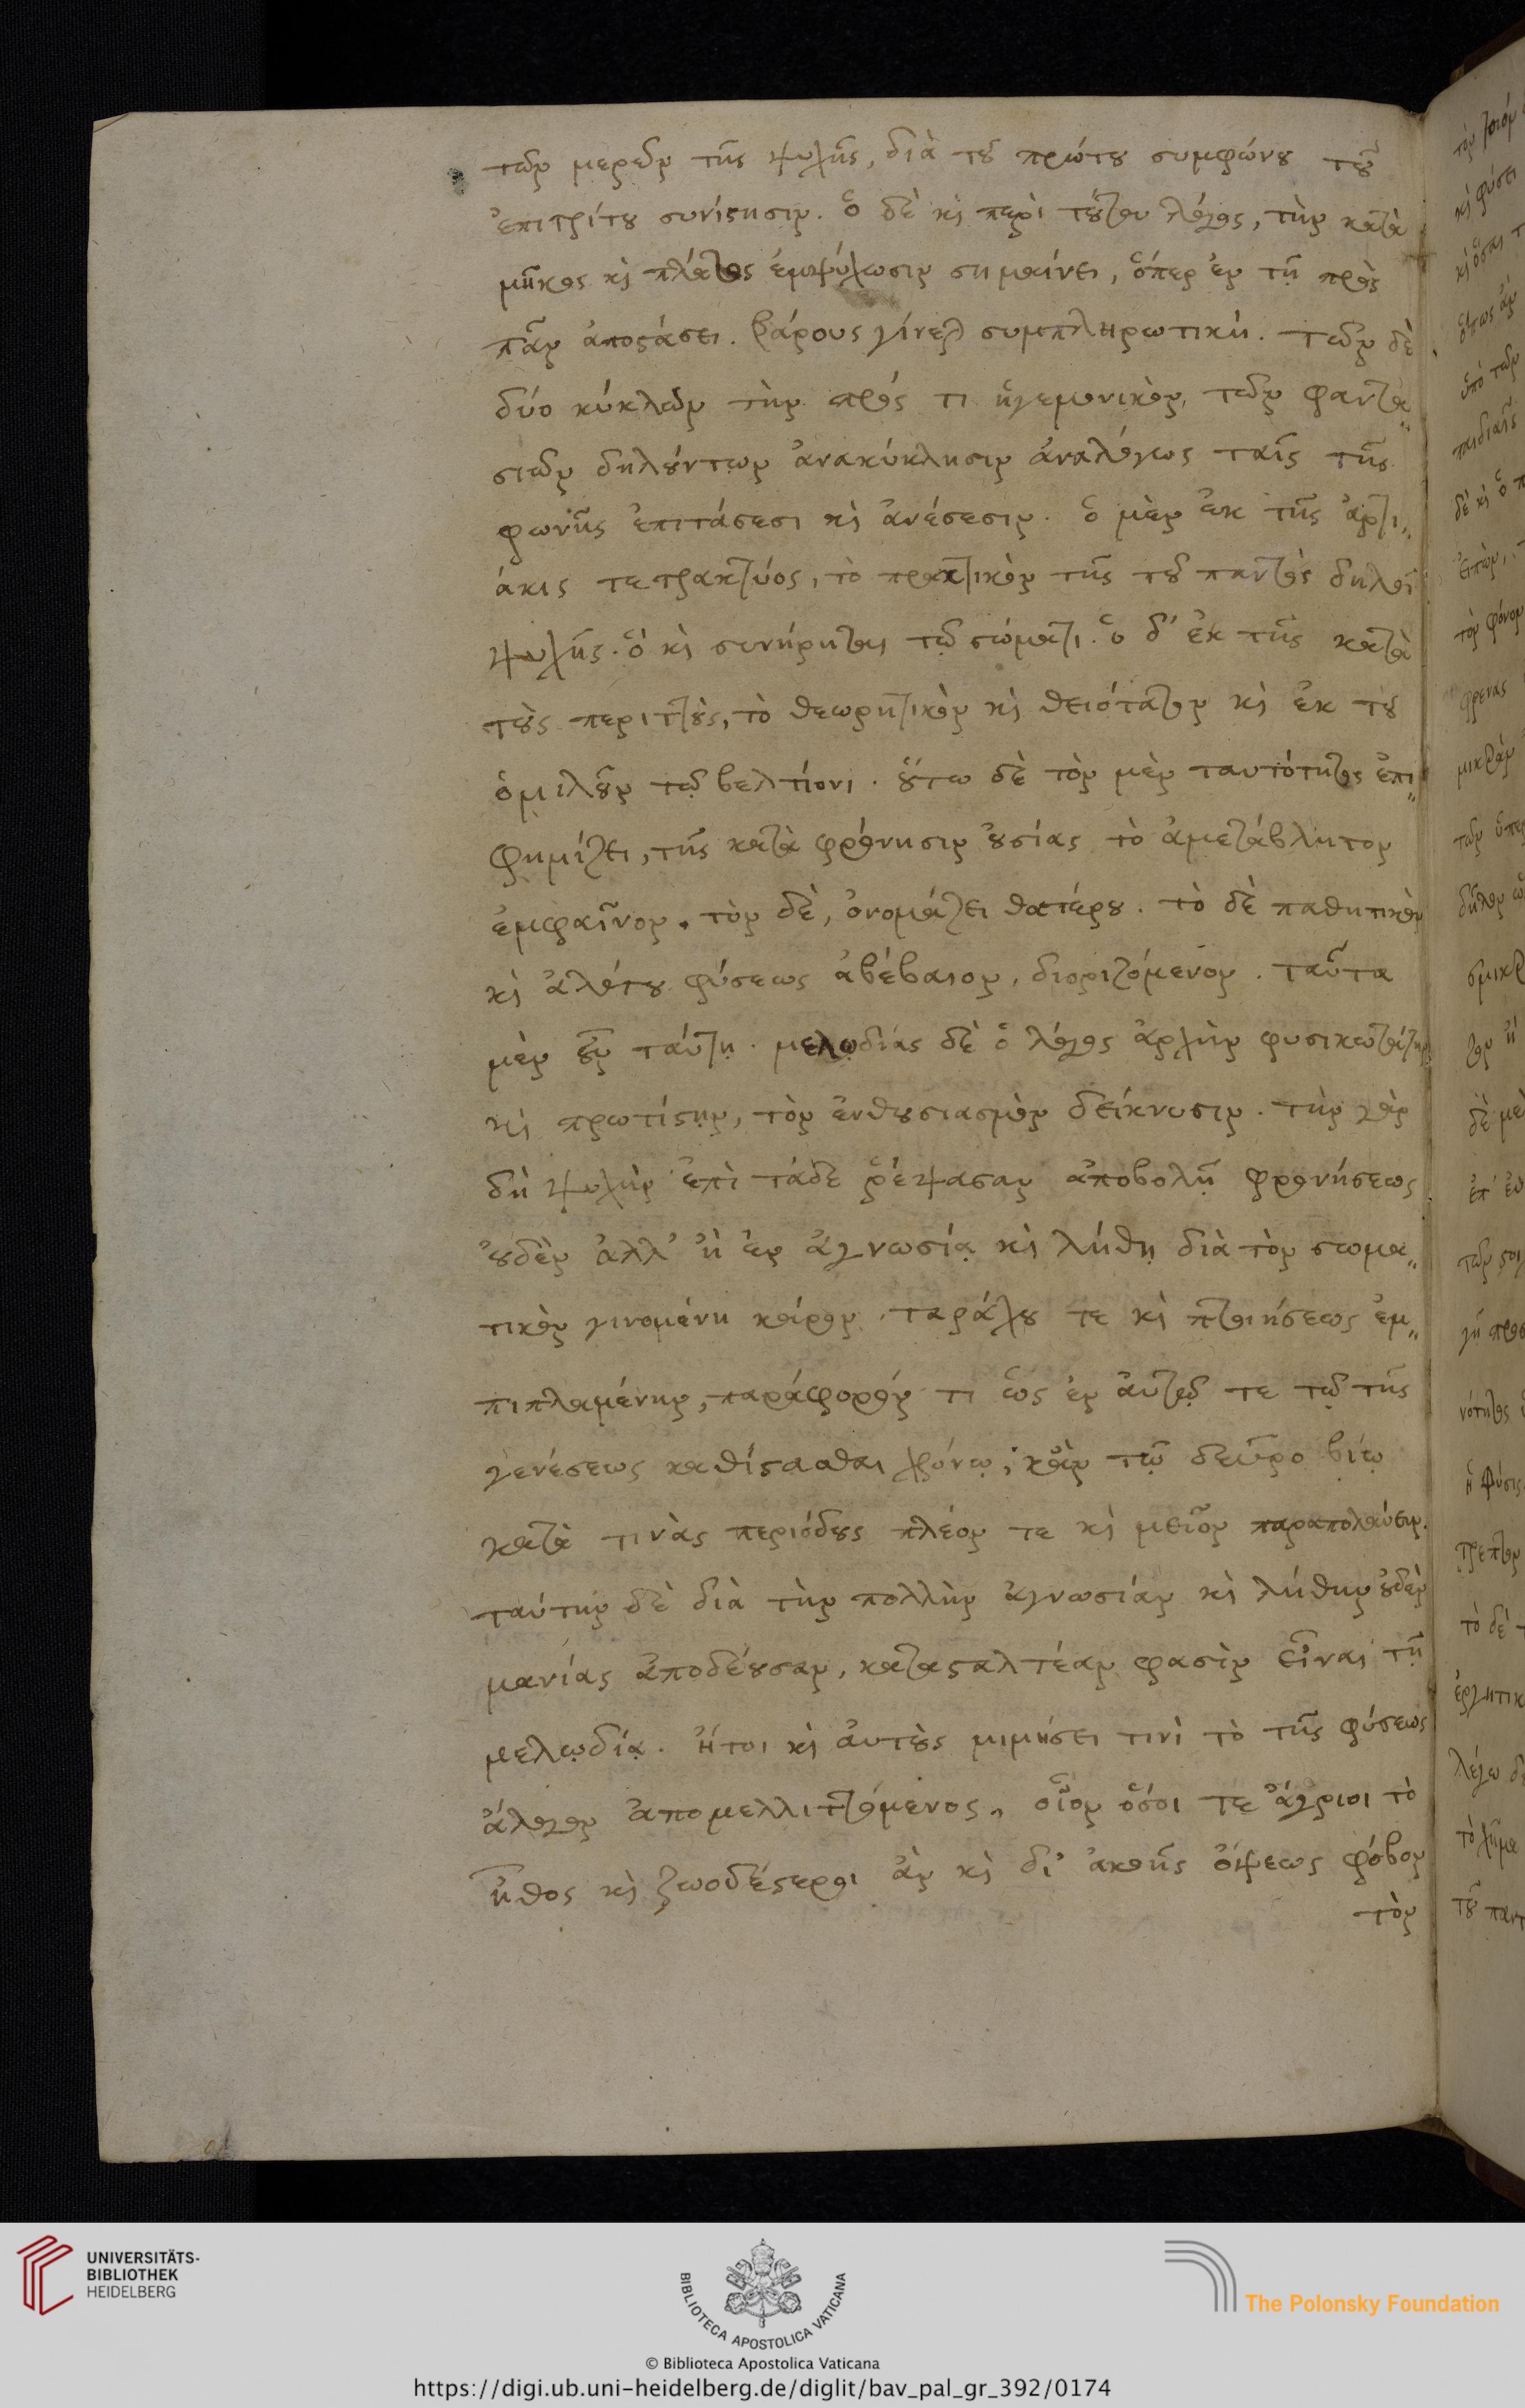 τῶν μερῶν τῆς ψυχῆς, διὰ τοῦ πρώτου συμφώνου τοῦ
ἐπιτρίτου συνίστησιν. ὁ δὲ καὶ περὶ τούτου λόγος, τὴν κατὰ
μῆκος καὶ πλάτος ἐμψύχωσιν σημαίνει, ὅπερ ἐν τῇ πρὸς
πᾶν ἀποστάσει. βάρους γίνεται συμπληρωτική. τῶν δὲ
δύο κύκλων τὴν πρός τι ἡγεμονικὸν, τῶν φαντα„
σιῶν δηλούντων ἀνακύκλησιν ἀναλόγως ταῖς τῆς
φωνῆς ἐπιτάσεσι καὶ ἀνέσεσιν. ὁ μὲν ἐκ τῆς ἀρτι„
άκις τετρακτύος, τὸ πρακτικὸν τῆς τοῦ παντὸς δηλοῖ
ψυχῆς. ὃ καὶ συνήρτηται τῷ σώματι. ὁ δ' ἐκ τῆς κατὰ
τοὺς περιττοὺς, τὸ θεωρητικὸν καὶ θειότατον καὶ ἐκ τοῦ
ὁμιλοῦν τῷ βελτίονι. οὕτω δὲ τὸν μὲν ταυτότητος ἐπι„
φημίζει, τῆς κατὰ φρόνησιν οὐσίας τὸ ἀμετάβλητον
ἐμφαῖνον. τὸν δὲ, ὀνομάζει θατέρου. τὸ δὲ παθητικὸν
καὶ ἀλόγου φύσεως ἀβέβαιον, διοριζόμενον. ταῦτα
μὲν οὖν ταύτῃ. μελῳδίας δὲ ὁ λόγος ἀρχὴν φυσικωτάτην
καὶ πρωτίστην, τὸν ἐνθουσιασμὸν δείκνυσιν. τὴν γὰρ
δὴ ψυχὴν ἐπὶ τάδε ῥέψασαν ἀποβολῇ φρονήσεως
οὐδὲν ἀλλ' ἢ ἐν ἀγνωσίᾳ καὶ λήθῃ διὰ τὸν σωμα„
τικὸν γινομένη κάρον, ταράχου τε καὶ πτοιήσεως ἐμ„
πιπλαμένην, παράφορόν τι ὡς ἐν αὐτῷ τε τῷ τῆς
γενέσεως καθίστασθαι χρόνῳ, κἂν τῷ δεῦρο βίῳ
κατὰ τινὰς περιόδους πλέον τε καὶ μεῖον παραπολαύειν.
ταύτην δὲ διὰ τὴν πολλὴν ἀγνωσίαν καὶ λήθην οὐδὲν
μανίας ἀποδέουσαν, κατασταλτέαν φασὶν εἶναι τῇ
μελῳδίᾳ. ἤτοι καὶ αὐτοὺς μιμήσει τινὶ τὸ τῆς φύσεως
ἄλογον ἀπομελλιττόμενος, οἷον ὅσοι τε ἄγριοι τὸ
ἦθος καὶ ζωοδέστεροι ἂν καὶ δι' ἀκοῆς ὄψεως φόβον
τὸν
UNIVERSITÄTS-
BIBLIOTHEK
HEIDELBERG
BIBLIOTECA APOSTOLICA VATICANA
The Polonsky Foundation
© Biblioteca Apostolica Vaticana
https://digi.ub.uni-heidelberg.de/diglit/bav_pal_gr_392/0174